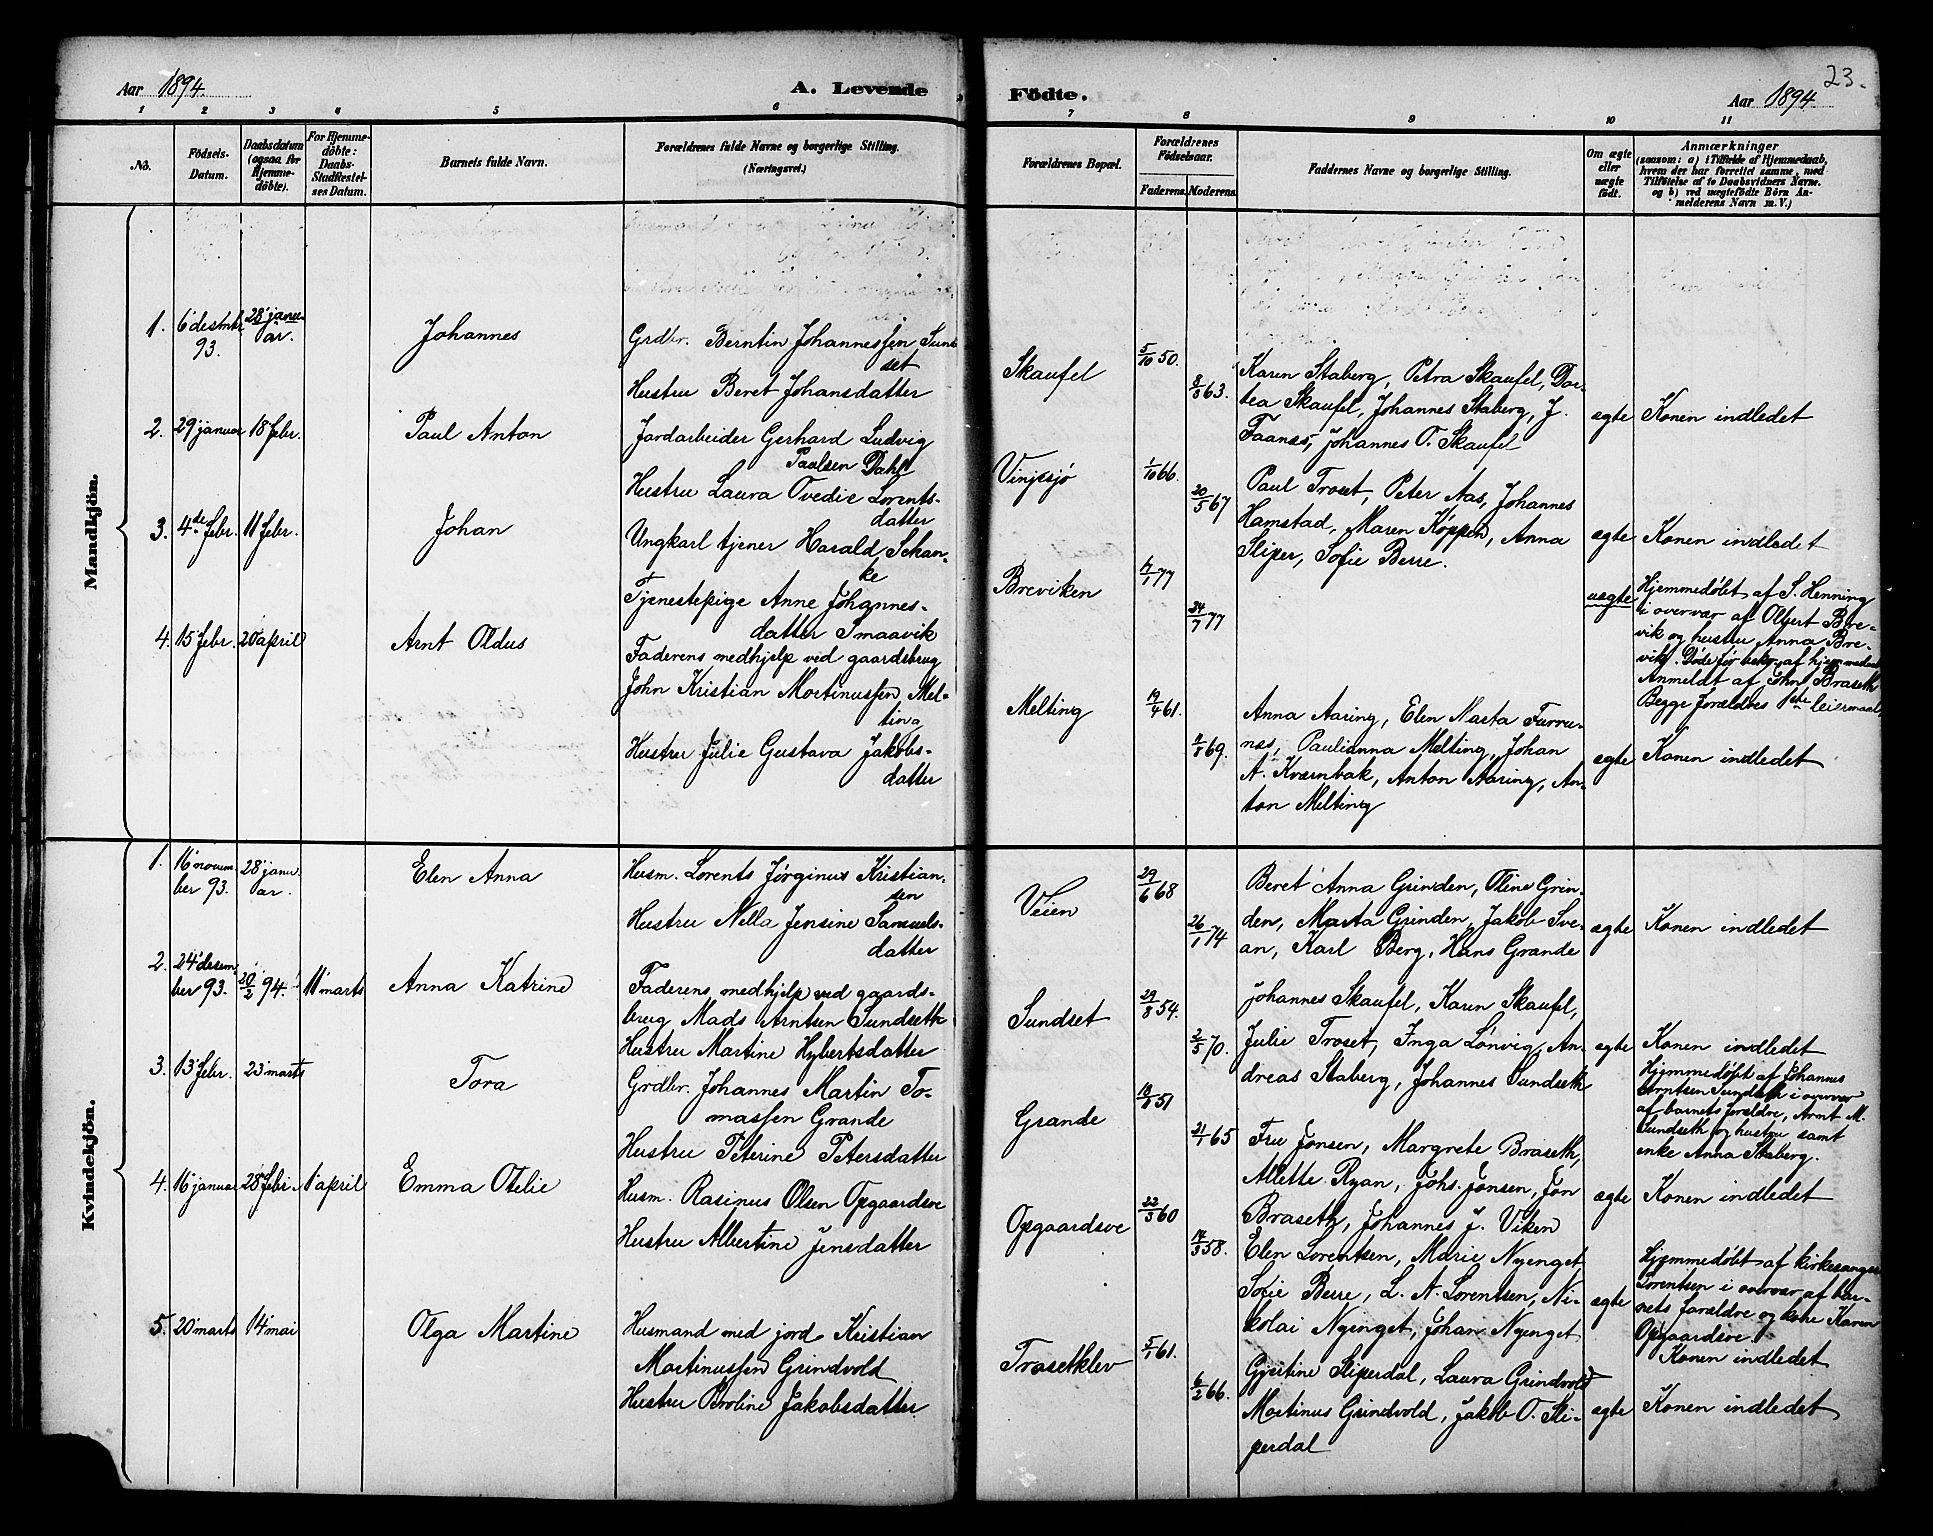 Aar 1894.
A. Levende
Födte.
Aar 1894.
23.
1 2 3 4 5 6 7 8 9 10 11
No.
Födsels-
Datum.
Daabsdatum
(ogsaa for
Hjemme-
döbte).
For Hjemme-
döbte:
Daabs-
Stadfæstel-
ses Datum.
Barnets fulde Navn.
Forældrenes fulde Navne og borgerlige Stilling.
(Næringsvei.)
Forældrenes Bopæl.
Forældrenes
Födselsaar.
Faderens. Moderens.
Faddernes Navne og borgerlige Stilling.
Om ægte
eller
uægte
födt.
Anmærkninger
(saasom: a) i Tilfælde af Hjemmedaab,
hvem der har forrettet samme, med
Tilföielse af to Daabsvidners Navne,
og b) ved uægtefödte Börn An-
melderens Navn m.V.)
Mandkjön.
1. 6 desmbr
93.
28 janu-
ar.
Johannes
Grdbr. Berntin Johannessen Sund
set
Hustru Beret Johansdatter
Skaufel
5/10 50.
8/8 63.
Karen Staberg, Petra Skaufel, Dor-
tea Skaufel, Johannes Staberg, J.
Faanes, Johannes O. Skaufel
ægte
Konen indledet
2. 29 januar 18 febr.
Paul Anton
Jordarbeider Gerhard Ludvig
Paulsen Dahl
Hustru Laura Ovedie Lorents-
datter
Vinjesjø
1/10 66.
20/5 67
Paul Troset, Peter Aas, Johannes
Hamstad, Maren Køppen, Anna
Sliper, Sofie Berre.
ægte
Konen indledet
3. 4de febr. 11 febr.
Johan
Ungkarl tjener Harald Schan-
ke
Tjenestepige Anne Johannes-
datter Smaavik
Breviken
17/1 77
24/7 77
uægte
Hjemmedøbt af S. Henning
i overvær af Olbert Bre-
vik og hustru Anna Bre-
vik. Døde før bekr. af hjemmedaab
Anmeldt af John Braseth
Begge forældres 1ste leiermaal,
4. 15 febr. 20 april
Arnt Oldus
Faderens medhjelp ved gaardsbrug
John Kristian Martinussen Mel-
ting
Hustru Julie Gustava Jakobs-
datter
Melting
19/4 61.
11/8 69.
Anna Aaring, Elen Marta Furru-
nes, Paulianna Melting, Johan
A. Kvernbak, Anton Aaring, An-
ton Melting
ægte
Konen indledet
Kvindekjön.
1. 16 novem-
ber 93.
28 janu-
ar.
Elen Anna
Husm. Lorents Jørginus Kristian-
sen
Hustru Nella Jensine Samuels-
datter
Veien
29/6 68
26/1 74
Beret Anna Grinden, Oline Grin-
den, Marta Grinden, Jakob Sve-
an, Karl Berg, Hans Grande
ægte
Konen indledet
2. 24 desem-
ber 93.
20/2 94. 11 marts
Anna Katrine
Faderens medhjelp ved gaards-
brug Mads Arntsen Sundseth
Hustru Martine Hybertsdatter
Sundset
29/8 54.
2/5 70.
Johannes Skaufel, Karen Skaufel,
Julie Troset, Inga Lønvig, An-
dreas Staberg, Johannes Sundseth
ægte
Konen indledet
Hjemmedøbt af Johannes
Arntsen Sundseth i overvær
af barnets forældre, Arnt M.
Sundseth og hustru samt
enke Anna Staberg.
3. 13 febr. 23 marts
Tora
Grdbr. Johannes Martin To-
massen Grande
Hustru Peterine Petersdatter
Grande
51
21/1 65
Fru Jonsen, Margrete Braseth,
Mette Ryan, Johs. Jonsen, Jon
Braseth, Johannes J. Viken
ægte
Konen indledet
4. 16 januar 28 febr. 1 april
Emma Otelie
Husm. Rasinus Olsen Opgaardsve
Hustru Albertine Jensdatter
Opgaardsve
22/3 60
14/3 58.
Elen Lorentsen, Marie Nyenget
Sofie Berre, L. A. Lorentsen, Ni-
kolai Nyenget, Johan Nyenget
ægte
Hjemmedøbt af kirkesanger
Lorentsen i overvær af bar-
nets forældre og kone Karen
Opgaardsve.
Konen indledet
5. 20 marts 14 mai
Olga Martine
Husmand med jord Kristian
Martinussen Grindvold
Hustru Broline Jakobsdatter
Trosetklev
5/1 61.
6/2 66.
Gjertine Sliperdal, Laura Grindvold
Martinus Grindvold, Jakob O. Sli-
perdal
ægte
Konen indledet